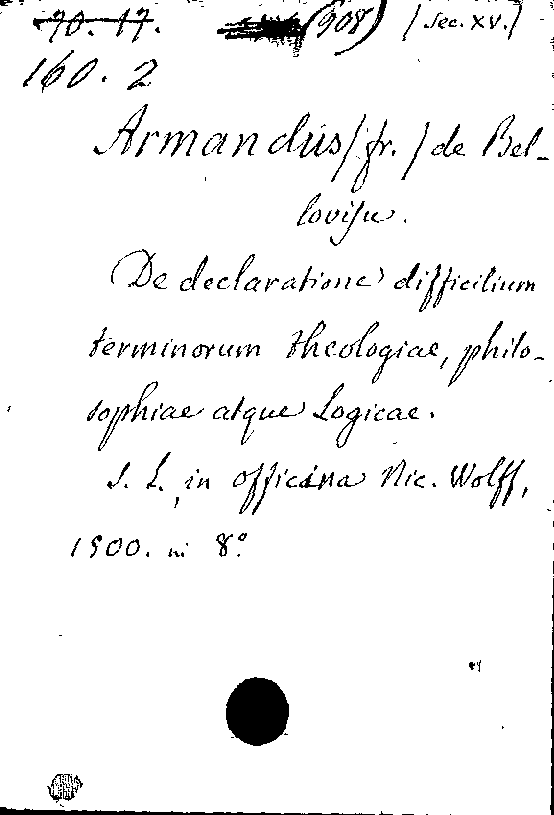 70. 17. (908) / Sec. XV. /
160. 2
Armandus / fr. / de Bel-
lovisu.
De declaratione difficilium
terminorum theologiae, philo-
sophiae atque Logicae.
S. L., in officina Nic. Wolff,
1500. in 8°.